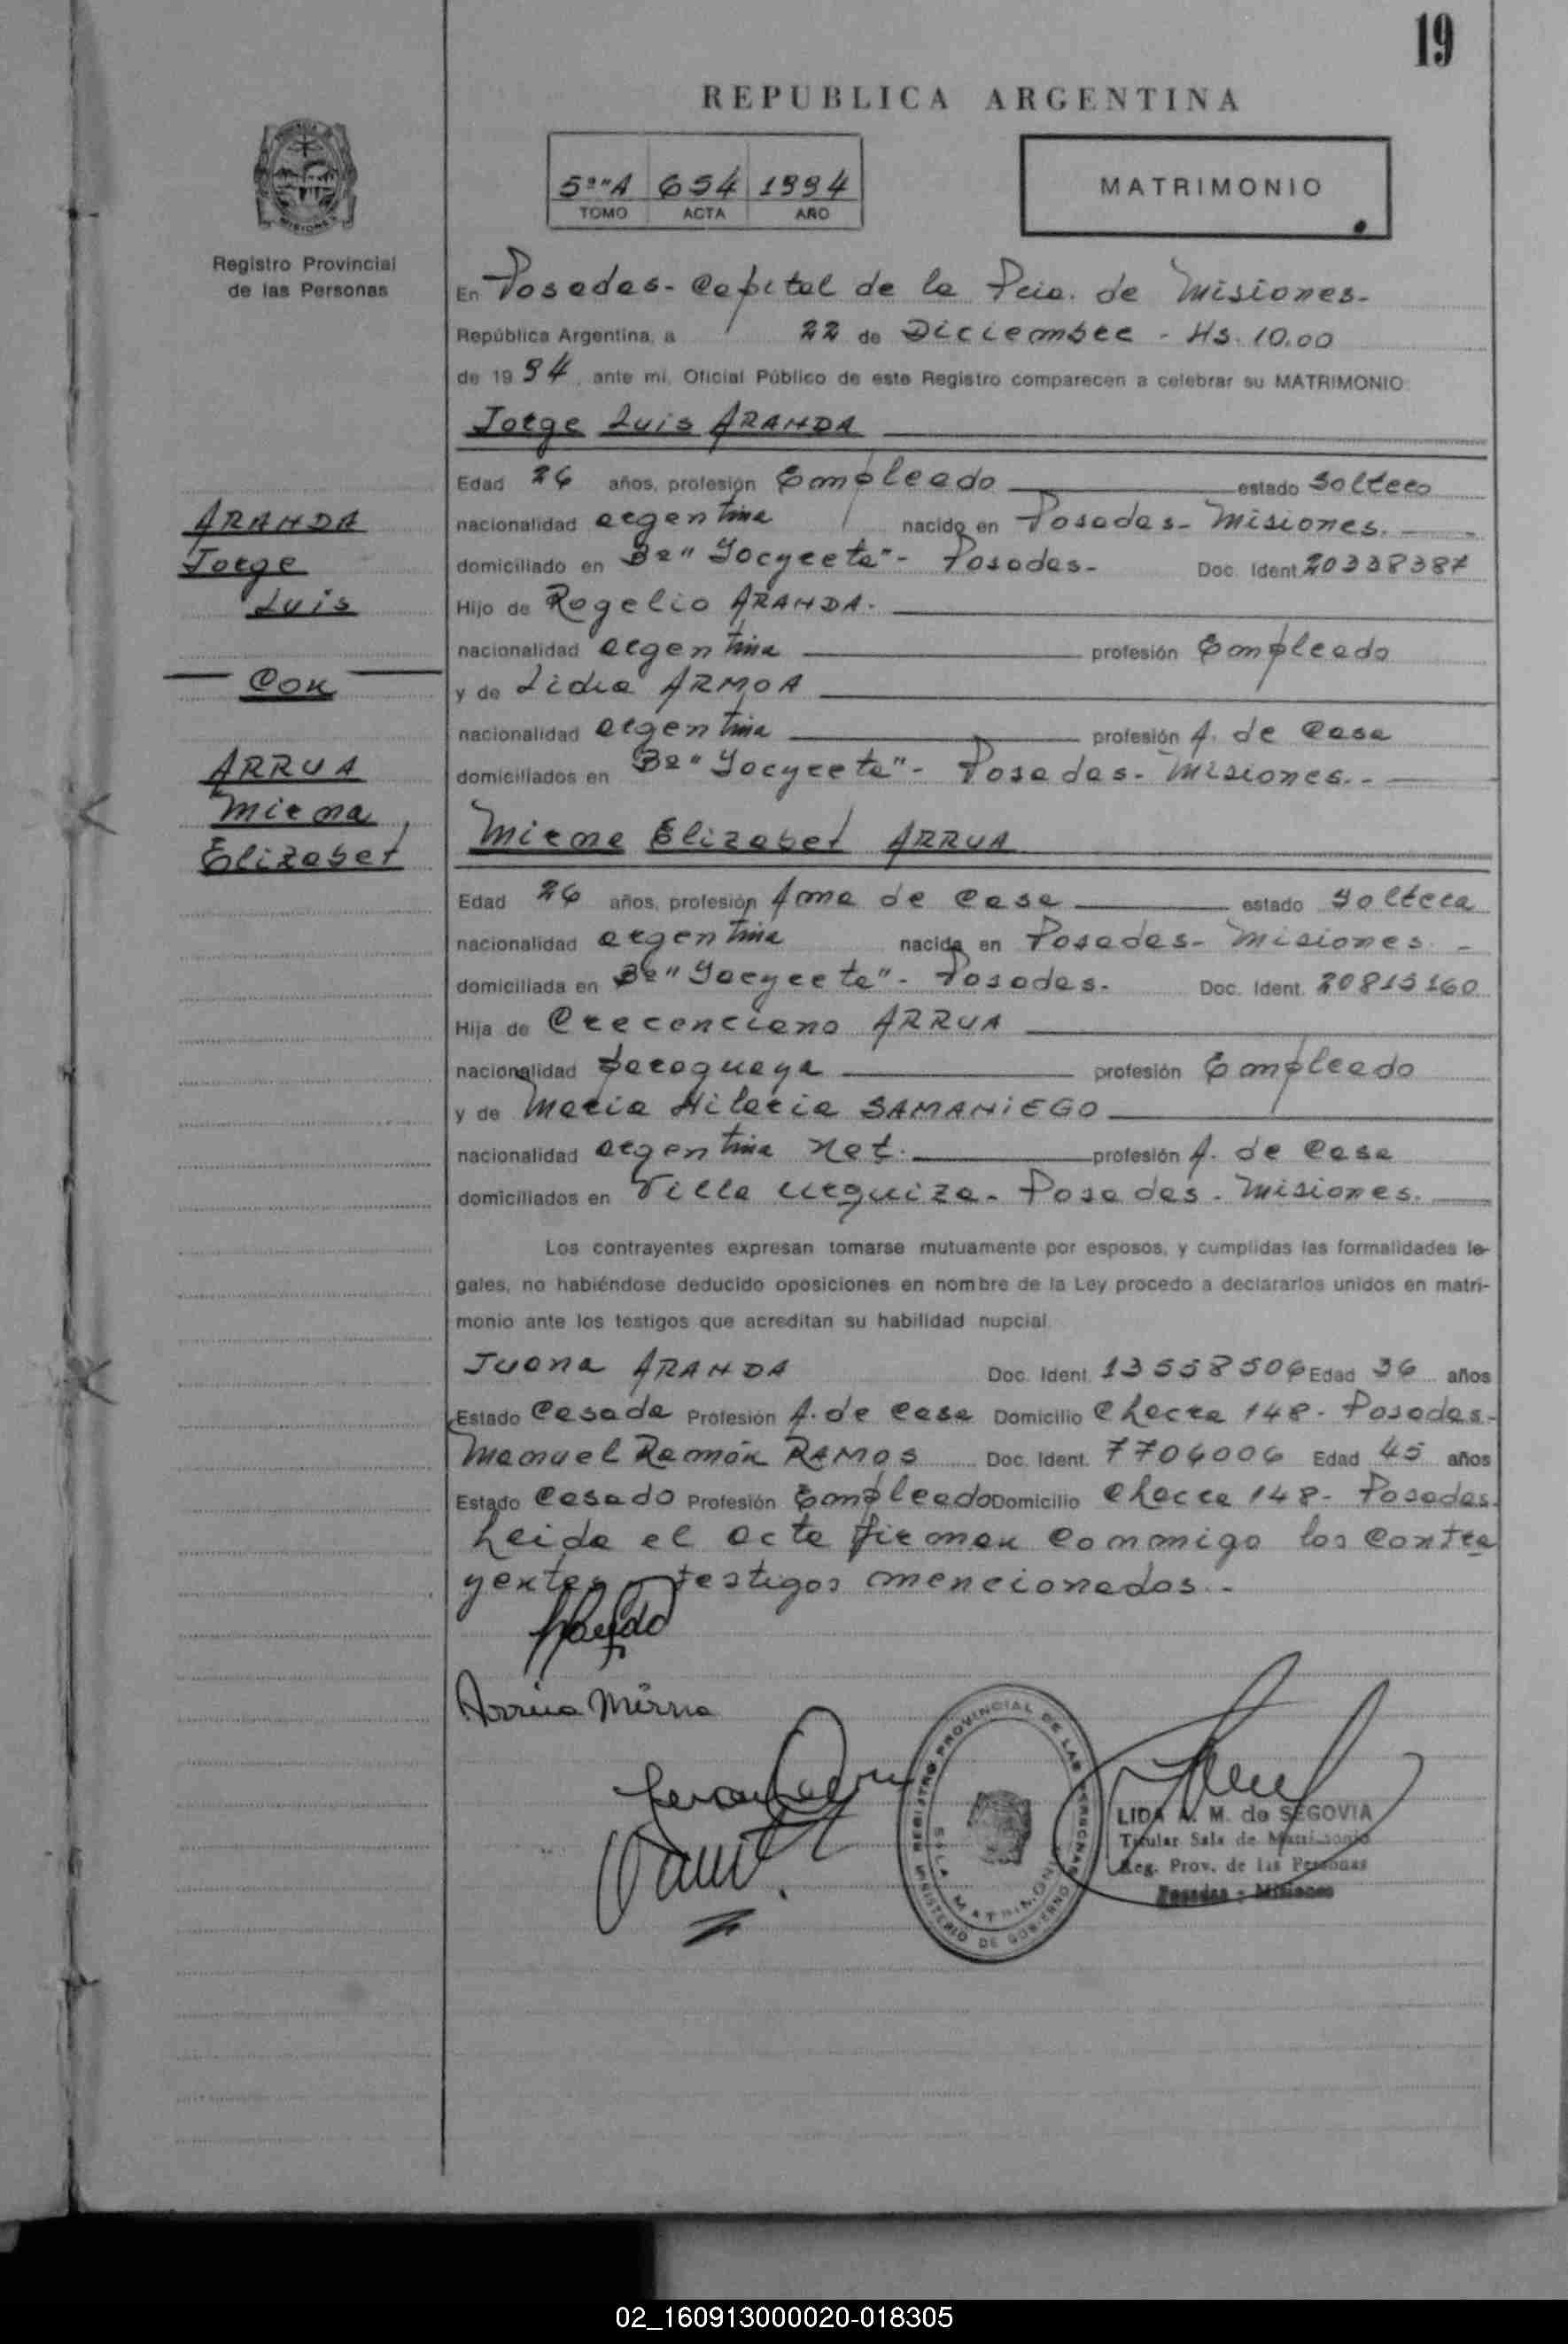 19
REPUBLICA ARGENTINA
5º"A" 654 1994
TOMO ACTA AÑO
MATRIMONIO
Registro Provincial
de las Personas
En Posadas- Capital de la Pcia. de Misiones-
República Argentina, a 22 de Diciembre - Hs. 10.00
de 1994, ante mi, Oficial Público de este Registro comparecen a celebrar su MATRIMONIO:
Jorge Luis ARANDA
Edad 26 años, profesión Empleado estado Soltero
nacionalidad argentina nacido en Posadas- Misiones.
domiciliado en Bº "Yacyreta"- Posadas- Doc. Ident. 20338387
Hijo de Rogelio ARANDA-
nacionalidad argentina profesión Empleado
y de Lidia ARMOA
nacionalidad argentina profesión A. de Casa
domiciliados en Bº "Yacyreta"- Posadas- Misiones.-
ARANDA
Jorge
Luis
Con
ARRUA
Mirna
Elizabet
Mirna Elizabet ARRUA
Edad 26 años, profesión Ama de Casa estado Soltera
nacionalidad argentina nacida en Posadas- Misiones. -
domiciliada en Bº "Yacyreta"- Posadas- Doc. Ident. 20815160
Hija de Crecenciano ARRUA
nacionalidad paraguaya profesión Empleado
y de Maria Hilaria SAMANIEGO
nacionalidad argentina nat. profesión A. de Casa
domiciliados en Villa Urquiza- Posadas- Misiones.
Los contrayentes expresan tomarse mutuamente por esposos, y cumplidas las formalidades le-
gales, no habiéndose deducido oposiciones en nombre de la Ley procedo a declararlos unidos en matri-
monio ante los testigos que acreditan su habilidad nupcial.
Juana ARANDA Doc. Ident. 13558506 Edad 36 años
Estado Casada Profesión A. de Casa Domicilio Chacra 148- Posadas-
Manuel Ramón RAMOS Doc. Ident. 7706006 Edad 45 años
Estado Casado Profesión Empleado Domicilio Chacra 148- Posadas.
Leida el acta firman conmigo los contra
yentes y testigos mencionados.-
Arrua Mirna
REGISTRO PROVINCIAL DE LAS PERSONAS
SALA MATRIMONIO
MINISTERIO DE GOBIERNO
LIDA A. M. de SEGOVIA
Titular Sala de Matrimonio
Reg. Prov. de las Personas
Posadas - Misiones
02_160913000020-018305